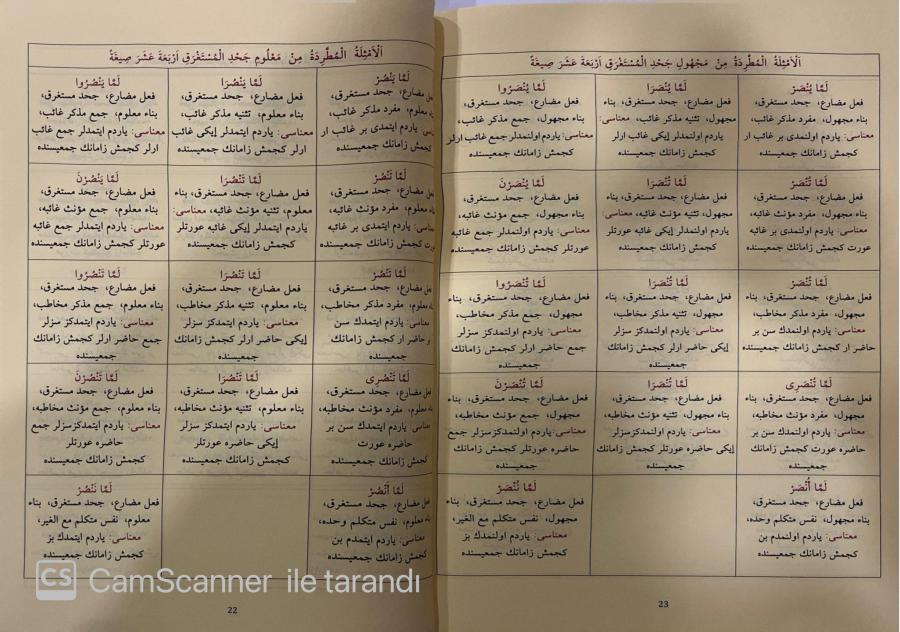 اَلْاَمْثِلَةُ الْمُطَّرِدَةُ مِنْ مَعْلُومِ جَحْدِ الْمُسْتَغْرَقِ اَرْبَعَةَ عَشَرَ صِيغَةً
لَمَّا يَنْصُرْ
فعل مضارع، جحد مستغرق،
بناء معلوم، مفرد مذكر غائب،
معناسى: ياردم ايتمدى بر غائب ار
كجمش زمانك جمعيسنده
لَمَّا يَنْصُرَا
فعل مضارع، جحد مستغرق،
بناء معلوم، تثنيه مذكر غائب،
معناسى: ياردم ايتمدلر إيكى غائب
ارلر كجمش زمانك جمعيسنده
لَمَّا يَنْصُرُوا
فعل مضارع، جحد مستغرق،
بناء معلوم، جمع مذكر غائب،
معناسى: ياردم ايتمدلر جمع غائب
ارلر كجمش زمانك جمعيسنده
لَمَّا تَنْصُرْ
فعل مضارع، جحد مستغرق،
بناء معلوم، مفرد مؤنث غائبه،
معناسى: ياردم ايتمدى بر غائبه
عورت كجمش زمانك جمعيسنده
لَمَّا تَنْصُرَا
فعل مضارع، جحد مستغرق، بناء
معلوم، تثنيه مؤنث غائبه، معناسى:
ياردم ايتمدلر إيكى غائبه عورتلر
كجمش زمانك جمعيسنده
لَمَّا يَنْصُرْنَ
فعل مضارع، جحد مستغرق،
بناء معلوم، جمع مؤنث غائبه،
معناسى: ياردم ايتمدلر جمع غائبه
عورتلر كجمش زمانك جمعيسنده
لَمَّا تَنْصُرْ
فعل مضارع، جحد مستغرق،
بناء معلوم، مفرد مذكر مخاطب،
معناسى: ياردم ايتمدك سن
بر حاضر ار كجمش زمانك
جمعيسنده
لَمَّا تَنْصُرَا
فعل مضارع، جحد مستغرق،
بناء معلوم، تثنيه مذكر مخاطب،
معناسى: ياردم ايتمدكز سزلر
إيكى حاضر ارلر كجمش زمانك
جمعيسنده
لَمَّا تَنْصُرُوا
فعل مضارع، جحد مستغرق،
بناء معلوم، جمع مذكر مخاطب،
معناسى: ياردم ايتمدكز سزلر
جمع حاضر ارلر كجمش زمانك
جمعيسنده
لَمَّا تَنْصُرِى
فعل مضارع، جحد مستغرق،
بناء معلوم، مفرد مؤنث مخاطبه،
معناسى: ياردم ايتمدك سن بر
حاضره عورت
كجمش زمانك جمعيسنده
لَمَّا تَنْصُرَا
فعل مضارع، جحد مستغرق،
بناء معلوم، تثنيه مؤنث مخاطبه،
معناسى: ياردم ايتمدكز سزلر
إيكى حاضره عورتلر
كجمش زمانك جمعيسنده
لَمَّا تَنْصُرْنَ
فعل مضارع، جحد مستغرق،
بناء معلوم، جمع مؤنث مخاطبه،
معناسى: ياردم ايتمدكزسزلر جمع
حاضره عورتلر
كجمش زمانك جمعيسنده
لَمَّا أَنْصُرْ
فعل مضارع، جحد مستغرق،
بناء معلوم، نفس متكلم وحده،
معناسى: ياردم ايتمدم بن
كجمش زمانك جمعيسنده
لَمَّا نَنْصُرْ
فعل مضارع، جحد مستغرق، بناء
معلوم، نفس متكلم مع الغير،
معناسى: ياردم ايتمدك بز
كجمش زمانك جمعيسنده
CS CamScanner ile tarandı
22
اَلْاَمْثِلَةُ الْمُطَّرِدَةُ مِنْ مَجْهُولِ جَحْدِ الْمُسْتَغْرَقِ اَرْبَعَةَ عَشَرَ صِيغَةً
لَمَّا يُنْصَرْ
فعل مضارع، جحد مستغرق،
بناء مجهول، مفرد مذكر غائب،
معناسى: ياردم اولنمدى بر غائب ار
كجمش زمانك جمعيسنده
لَمَّا يُنْصَرَا
فعل مضارع، جحد مستغرق، بناء
مجهول، تثنيه مذكر غائب، معناسى:
ياردم اولنمدلر إيكى غائب ارلر
كجمش زمانك جمعيسنده
لَمَّا يُنْصَرُوا
فعل مضارع، جحد مستغرق،
بناء مجهول، جمع مذكر غائب،
معناسى: ياردم اولنمدلر جمع غائب ارلر
كجمش زمانك جمعيسنده
لَمَّا تُنْصَرْ
فعل مضارع، جحد مستغرق،
بناء مجهول، مفرد مؤنث غائبه،
معناسى: ياردم اولنمدى بر غائبه
عورت كجمش زمانك جمعيسنده
لَمَّا تُنْصَرَا
فعل مضارع، جحد مستغرق، بناء
مجهول، تثنيه مؤنث غائبه، معناسى:
ياردم اولنمدلر إيكى غائبه عورتلر
كجمش زمانك جمعيسنده
لَمَّا يُنْصَرْنَ
فعل مضارع، جحد مستغرق،
بناء مجهول، جمع مؤنث غائبه،
معناسى: ياردم اولنمدلر جمع غائبه
عورتلر كجمش زمانك جمعيسنده
لَمَّا تُنْصَرْ
فعل مضارع، جحد مستغرق، بناء
مجهول، مفرد مذكر مخاطب،
معناسى: ياردم اولنمدك سن بر
حاضر ار كجمش زمانك جمعيسنده
لَمَّا تُنْصَرَا
فعل مضارع، جحد مستغرق، بناء
مجهول، تثنيه مذكر مخاطب،
معناسى: ياردم اولنمدكز سزلر
إيكى حاضر ارلر كجمش زمانك
جمعيسنده
لَمَّا تُنْصَرُوا
فعل مضارع، جحد مستغرق، بناء
مجهول، جمع مذكر مخاطب،
معناسى: ياردم اولنمدكز سزلر
جمع حاضر ارلر كجمش زمانك
جمعيسنده
لَمَّا تُنْصَرِى
فعل مضارع، جحد مستغرق، بناء
مجهول، مفرد مؤنث مخاطبه،
معناسى: ياردم اولنمدك سن بر
حاضره عورت كجمش زمانك
جمعيسنده
لَمَّا تُنْصَرَا
فعل مضارع، جحد مستغرق،
بناء مجهول، تثنيه مؤنث مخاطبه،
معناسى: ياردم اولنمدكزسزلر
إيكى حاضره عورتلر كجمش زمانك
جمعيسنده
لَمَّا تُنْصَرْنَ
فعل مضارع، جحد مستغرق، بناء
مجهول، جمع مؤنث مخاطبه،
معناسى: ياردم اولنمدكزسزلر جمع
حاضره عورتلر كجمش زمانك
جمعيسنده
لَمَّا أُنْصَرْ
فعل مضارع، جحد مستغرق،
بناء مجهول، نفس متكلم وحده،
معناسى: ياردم اولنمدم بن
كجمش زمانك جمعيسنده
لَمَّا نُنْصَرْ
فعل مضارع، جحد مستغرق، بناء
مجهول، نفس متكلم مع الغير،
معناسى: ياردم اولنمدك بز
كجمش زمانك جمعيسنده
23